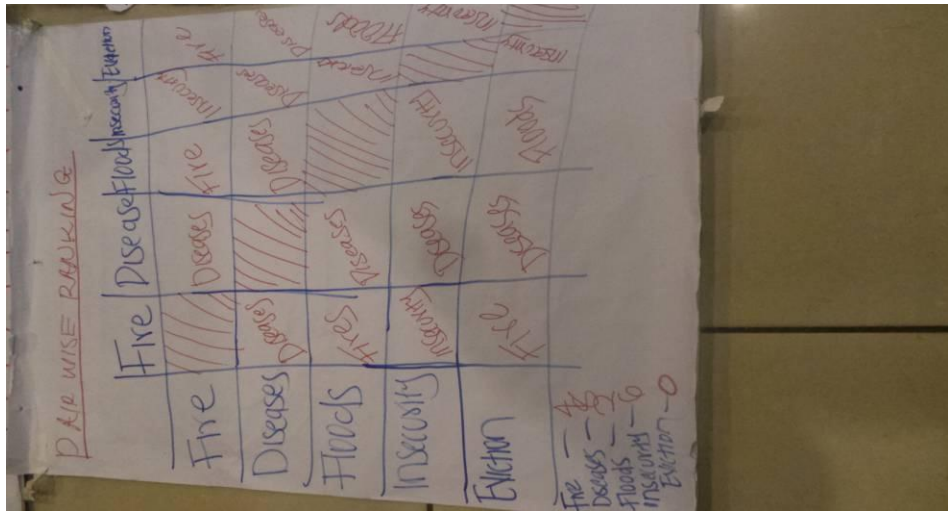 PAIR WISE RANKING
Fire Disease Floods Insecurity Eviction
Fire Diseases Fire Insecurity Fire
Diseases Diseases Diseases Diseases Disease
Floods Fires Diseases Insecurity Floods
Insecurity Insecurity Diseases Insecurity Insecurity
Eviction Fire Diseases Floods Insecurity
Fire — 4
Diseases — 8
Floods — 2
Insecurity — 6
Eviction — 0